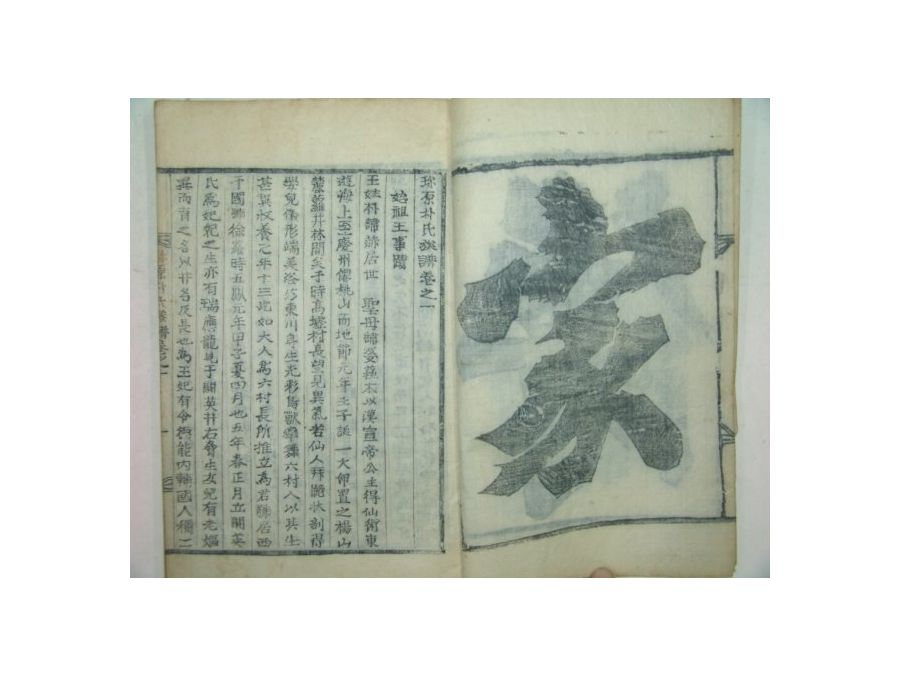 家
珍原朴氏族譜卷之一
始祖王事蹟
王姓朴諱赫居世 聖母諱婆蘇本以漢宣帝公主得仙術東
遊海上至慶州僊桃山而地節元年壬子誕一大卵置之楊山
蘿井林間矣于時高墟村長望見異氣若仙人拜跪狀剖得
嬰兒儀形端美浴於東川身生光彩鳥獸率舞六村人以其生
甚異收養之年十三屹如大人爲六村長所推立爲君號居西
干國號徐羅時五鳳元年甲子夏四月也五年春正月立閼英
氏爲妃妃之生亦有瑞應龍見于閼英井右脅生女兒有老嫗
異而育之名以井名及長也爲王妃有令德能內輔國人稱二